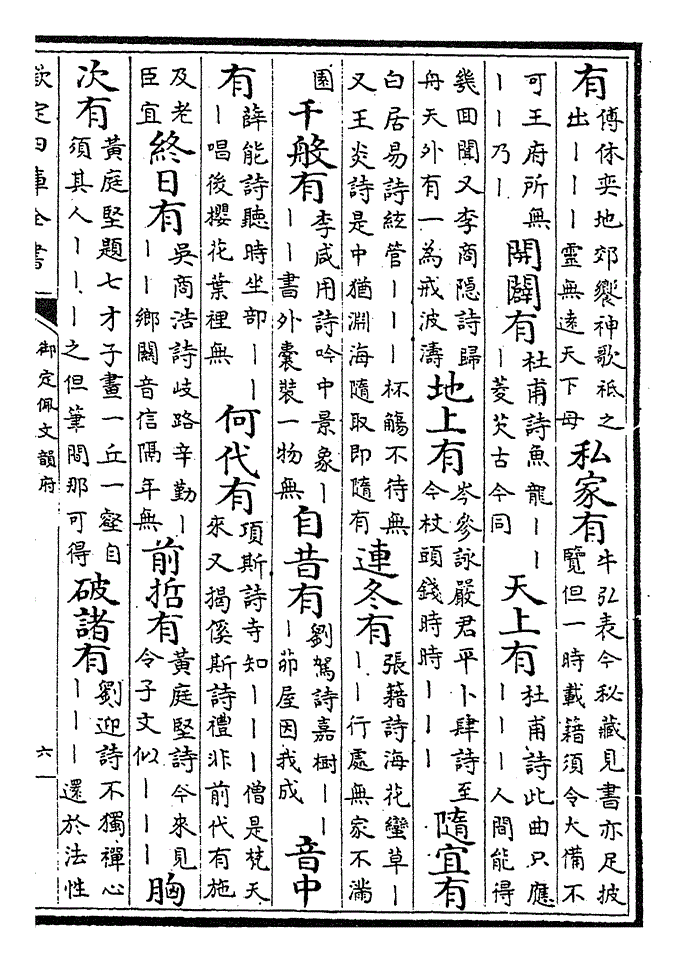 有傅休奕地郊饗神歌祗之出｜｜｜靈無遠天下母私家有牛弘表今秘藏見書亦足披覽但一時載籍須令大備不
可王府所無｜｜乃｜開闢有杜甫詩魚龍｜｜｜菱芡古今同天上有杜甫詩此曲只應｜｜｜人間能得
幾回聞又李商隱詩歸舟天外有一為戒波濤地上有岑參詠嚴君平卜肆詩至今杖頭錢時時｜｜｜隨宜有
白居易詩絃管｜｜｜杯觴不待無又王炎詩是中猶淵海隨取即隨有連冬有張籍詩海花蠻草｜｜｜行處無家不滿
園千般有李咸用詩吟中景象｜｜｜書外囊裝一物無自昔有劉駕詩嘉樹｜｜｜茆屋因我成音中
有薛能詩聽時坐部｜｜｜唱後櫻花葉裡無何代有項斯詩寺知｜｜｜僧是梵天來又揭傒斯詩禮非前代有施
及老臣宜終日有吳商浩詩岐路辛勤｜｜｜鄉關音信隔年無前哲有黃庭堅詩今來見令子文似｜｜｜胸
次有黃庭堅題七才子畫一丘一壑自須其人｜｜｜之但筆間那可得破諸有劉迎詩不獨禪心｜｜｜還於法性
欽定四庫全書
御定佩文韻府
六